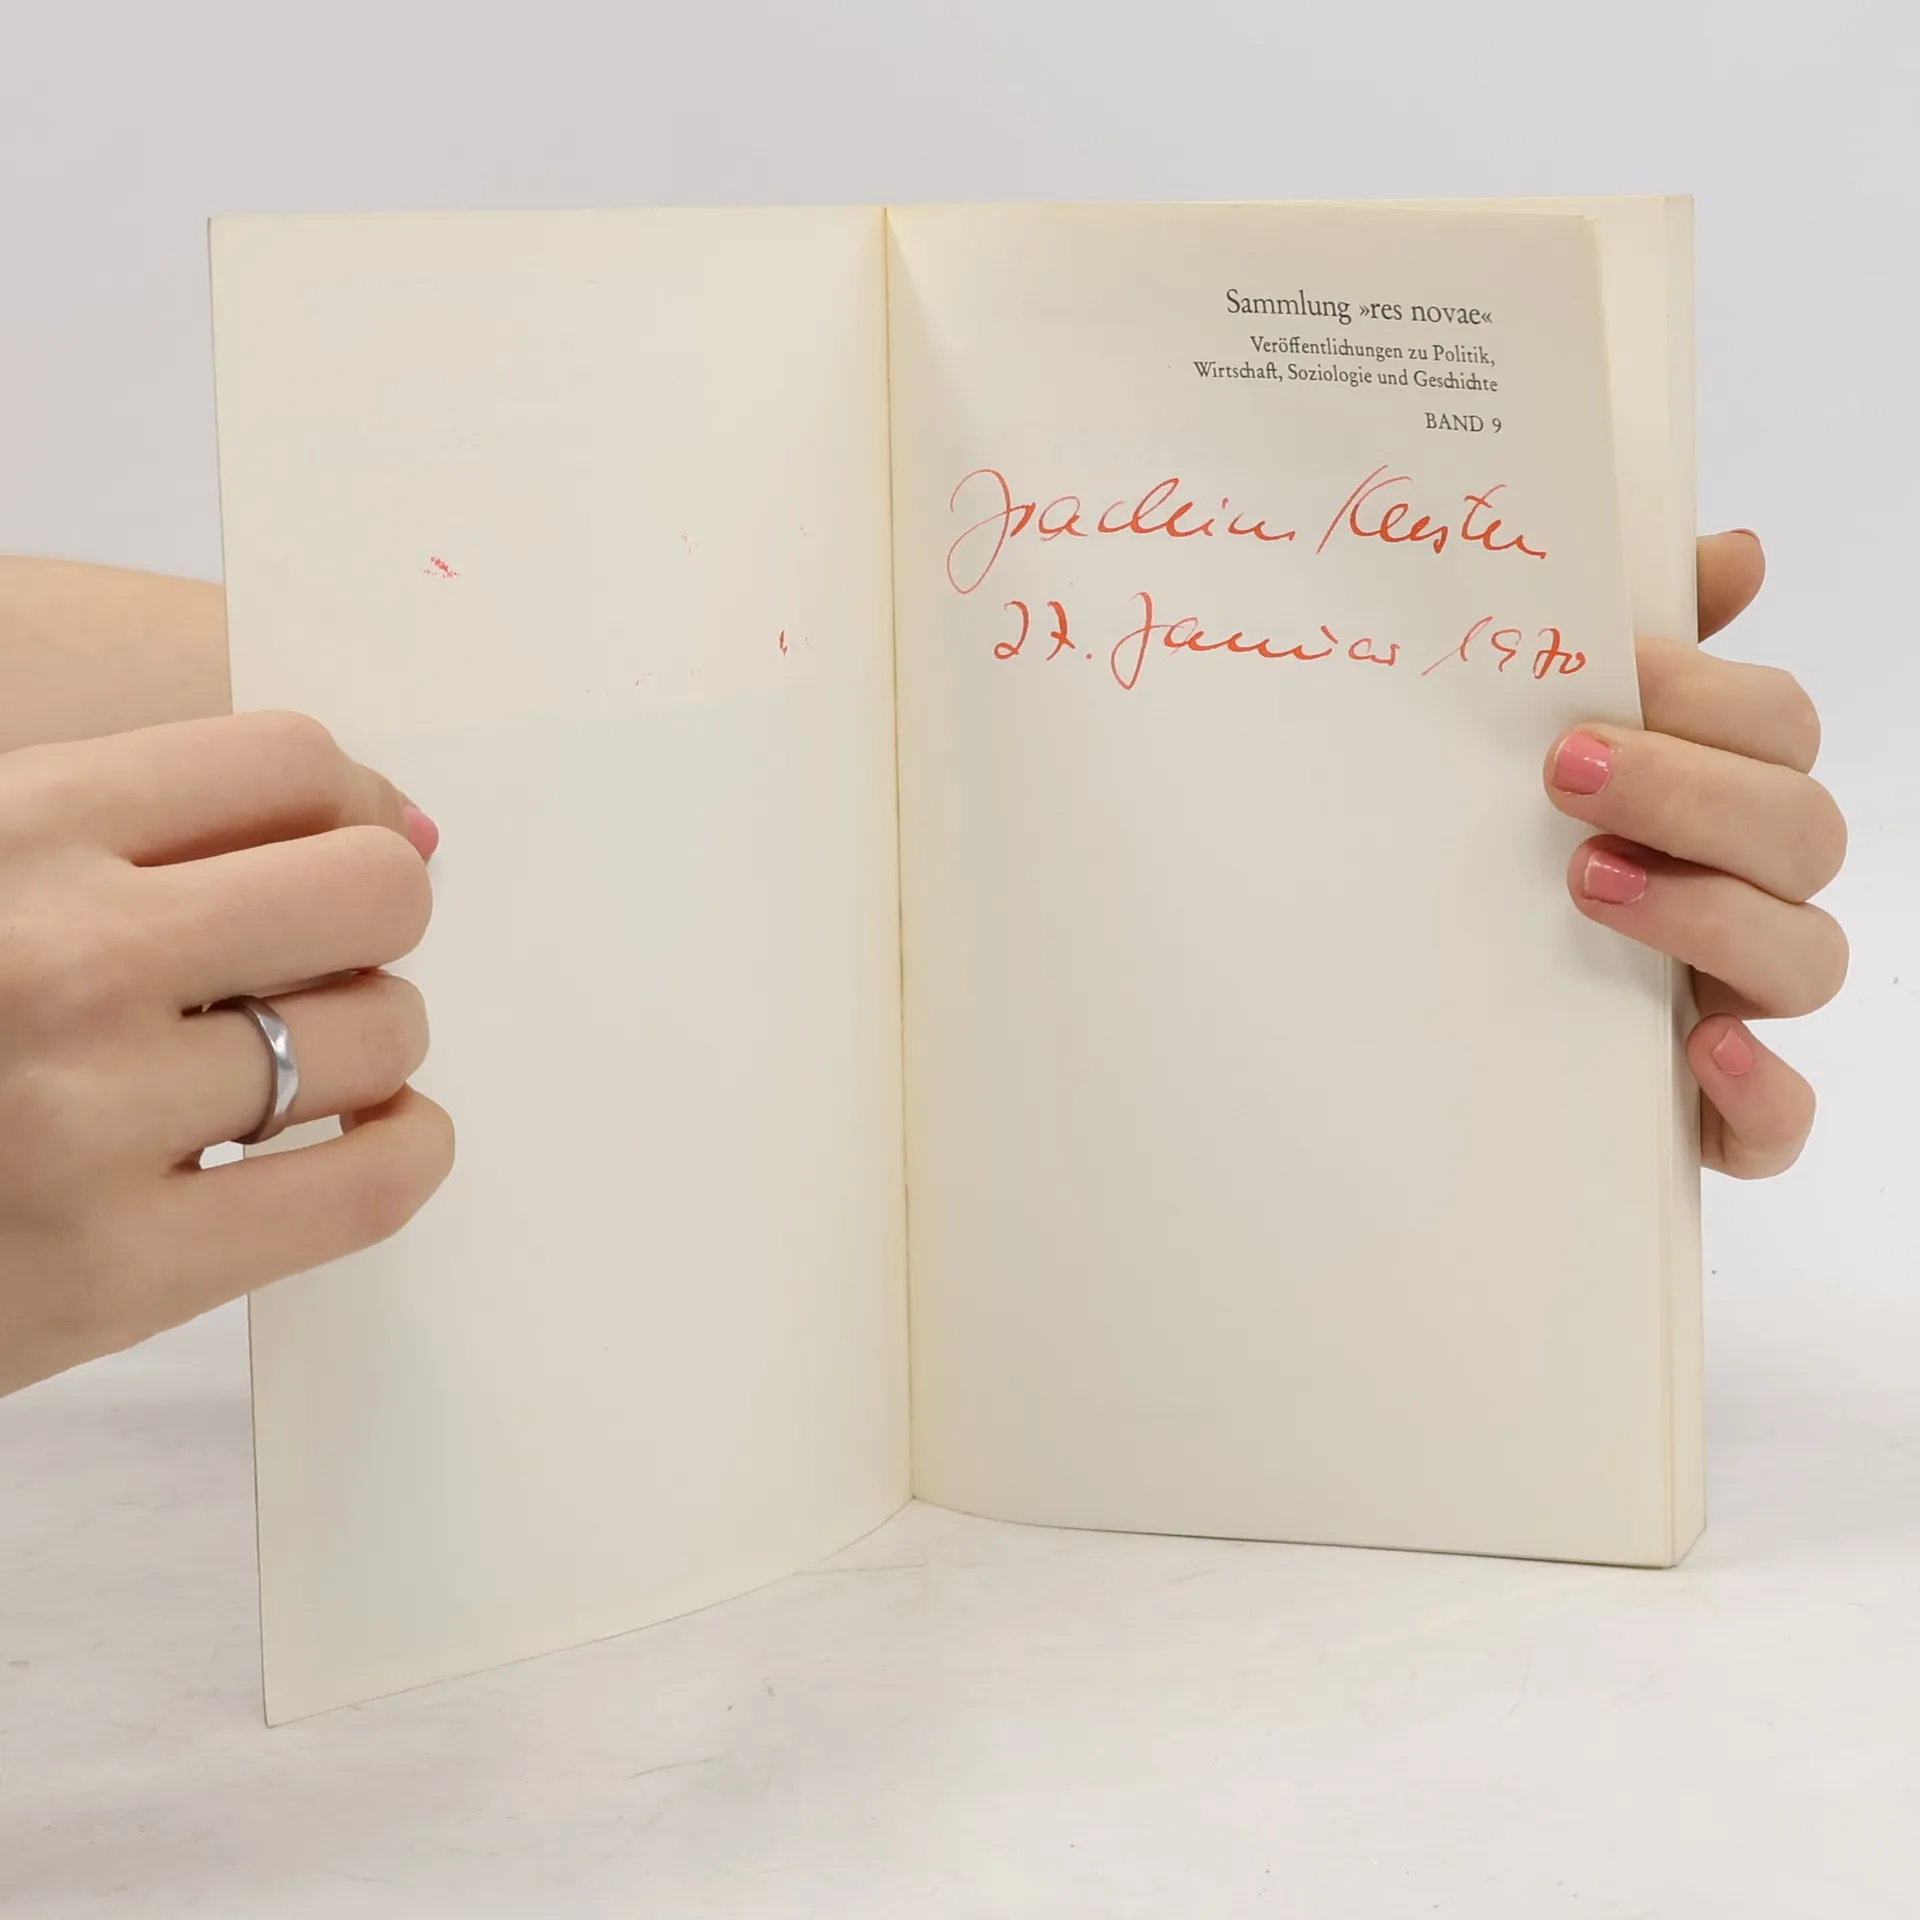 Sammlung »res novae«
Veröffentlichungen zu Politik,
Wirtschaft, Soziologie und Geschichte
BAND 9
Joachim Kersten
27. Januar 1970